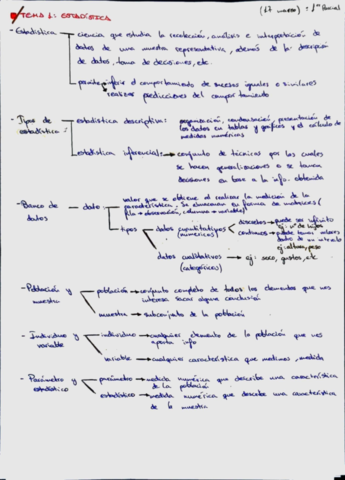 TEMA 1: ESTADÍSTICA (17 marzo): 1er Parcial
- Estadística ciencia que estudia la recolección, análisis e interpretación de
datos de una muestra representativa, además de la descripción
de datos, toma de decisiones, etc.
permite inferir el comportamiento de sucesos iguales o similares
realizar predicciones del comportamiento
- Tipos de estadística: estadística descriptiva: presentación de
los datos en tablas y gráficos y el cálculo de
medidas numéricas
estadística inferencial: conjunto de técnicas por las cuales
se hacen generalizaciones o se toman
decisiones en base a la info. obtenida
- Banco de datos dato valor que se obtiene al realizar la medición de la
característica. Se almacenan en forma de matrices (
fila = observación, columna = variable)
tipos datos cuantitativos (numéricos) discretos puede ser infinito
ej: nº de hijos
continuos puede tomar valores
dentro de un intervalo
ej: altura, peso
datos cualitativos (categóricos) ej: sexo, gustos, etc
- Población y muestra población conjunto completo de todos los elementos que nos
interesa sacar alguna conclusión
muestra subconjunto de la población
- Individuo y variable individuo cualquier elemento de la población que nos
aporta info
variable cualquier característica que medimos, medida
- Parámetro y estadístico parámetro medida numérica que describe una característica
de la población
estadístico medida numérica que describe una característica
de la muestra